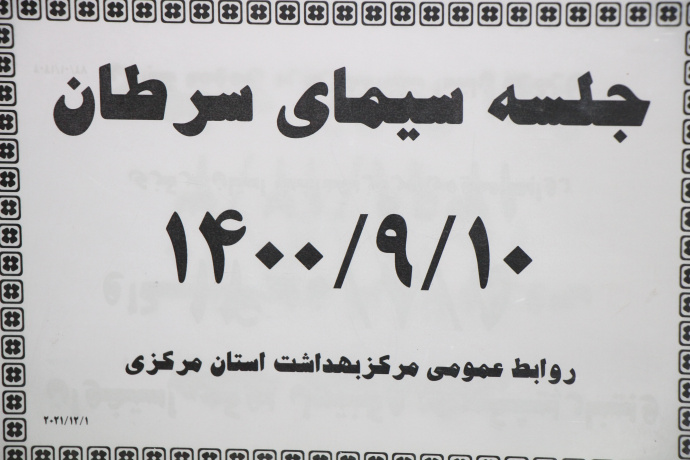 جلسه سیمای سرطان
۱۴۰۰/۹/۱۰
روابط عمومی مرکزبهداشت استان مرکزی
۲۰۲۱/۱۲/۱